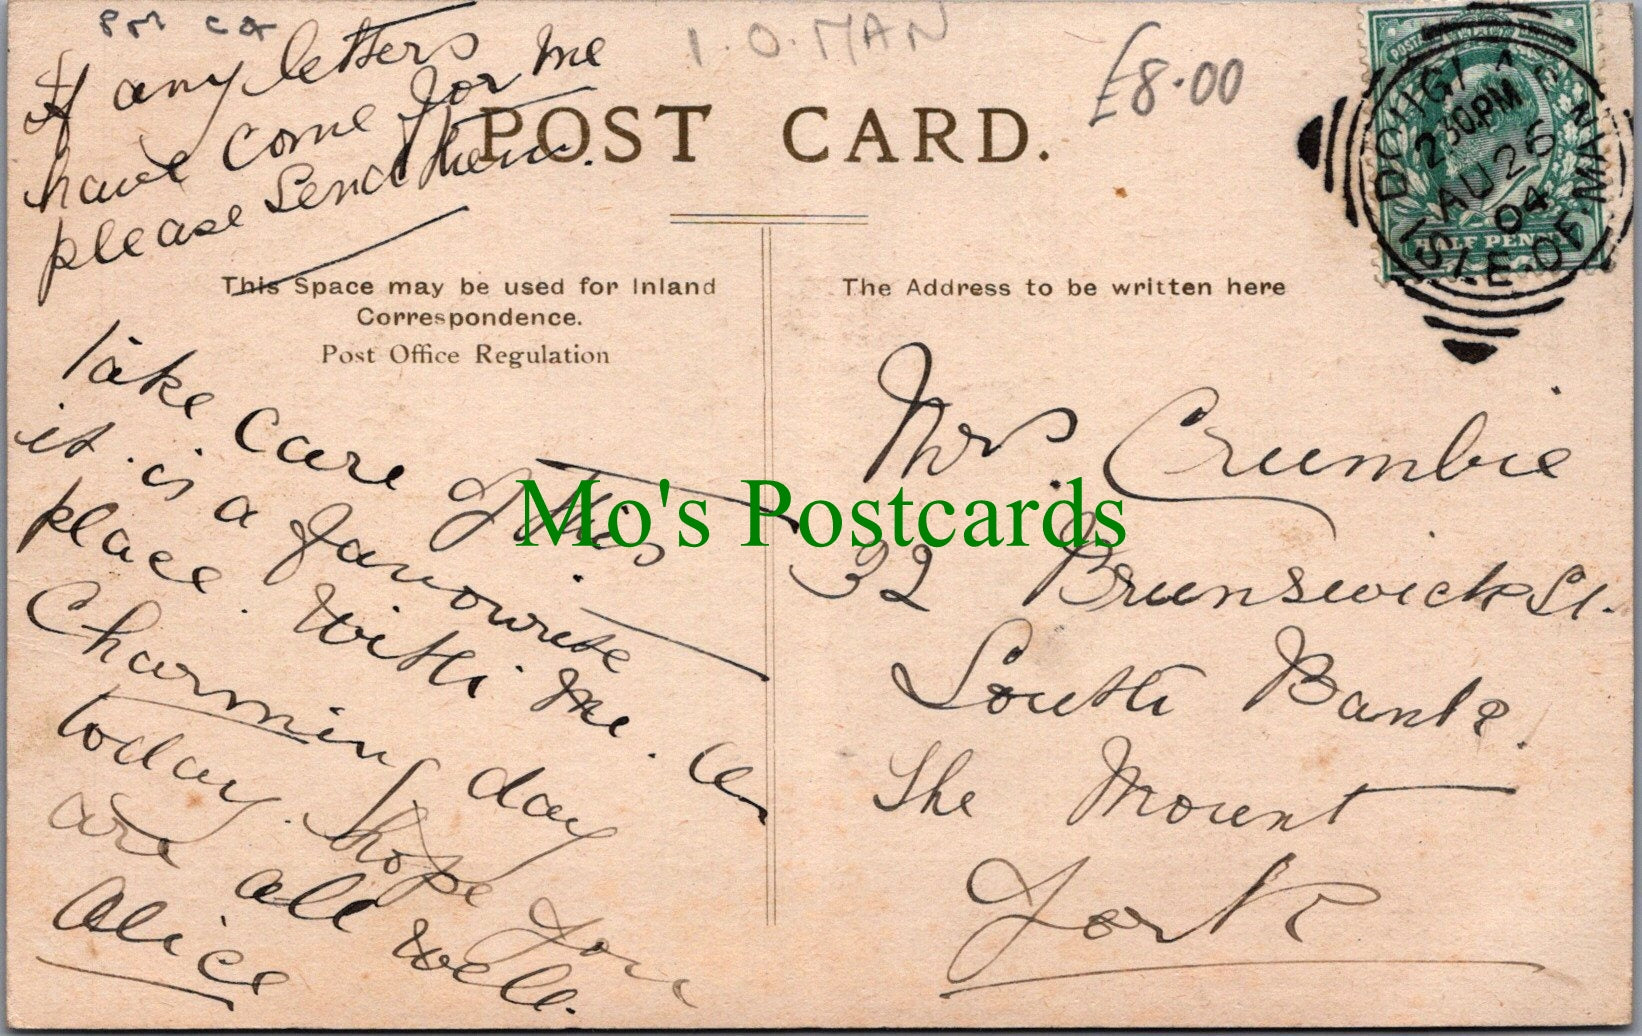 PM CA
I.O.MAN
£8.00
If any letters
have come for me
please send them.
POST CARD.
This Space may be used for Inland
Correspondence.
Post Office Regulation
The Address to be written here
DOUGLAS
2 30.PM
AU 26
04
ISLE-OF-MAN
HALF PENNY
Take care of this
it is a favourite
place. With me. A
Charming day
today. Hope you
are all well.
Alice
Mrs. Crumbie
32 Brunswick St.
South Bank.
The Mount
York
Mo's Postcards